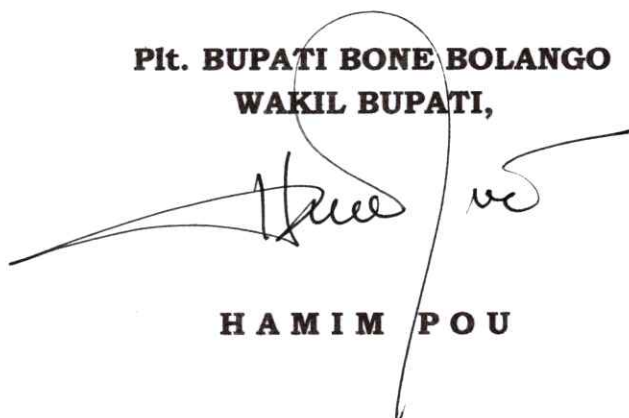 Plt. BUPATI BONE BOLANGO
WAKIL BUPATI,
HAMIM POU